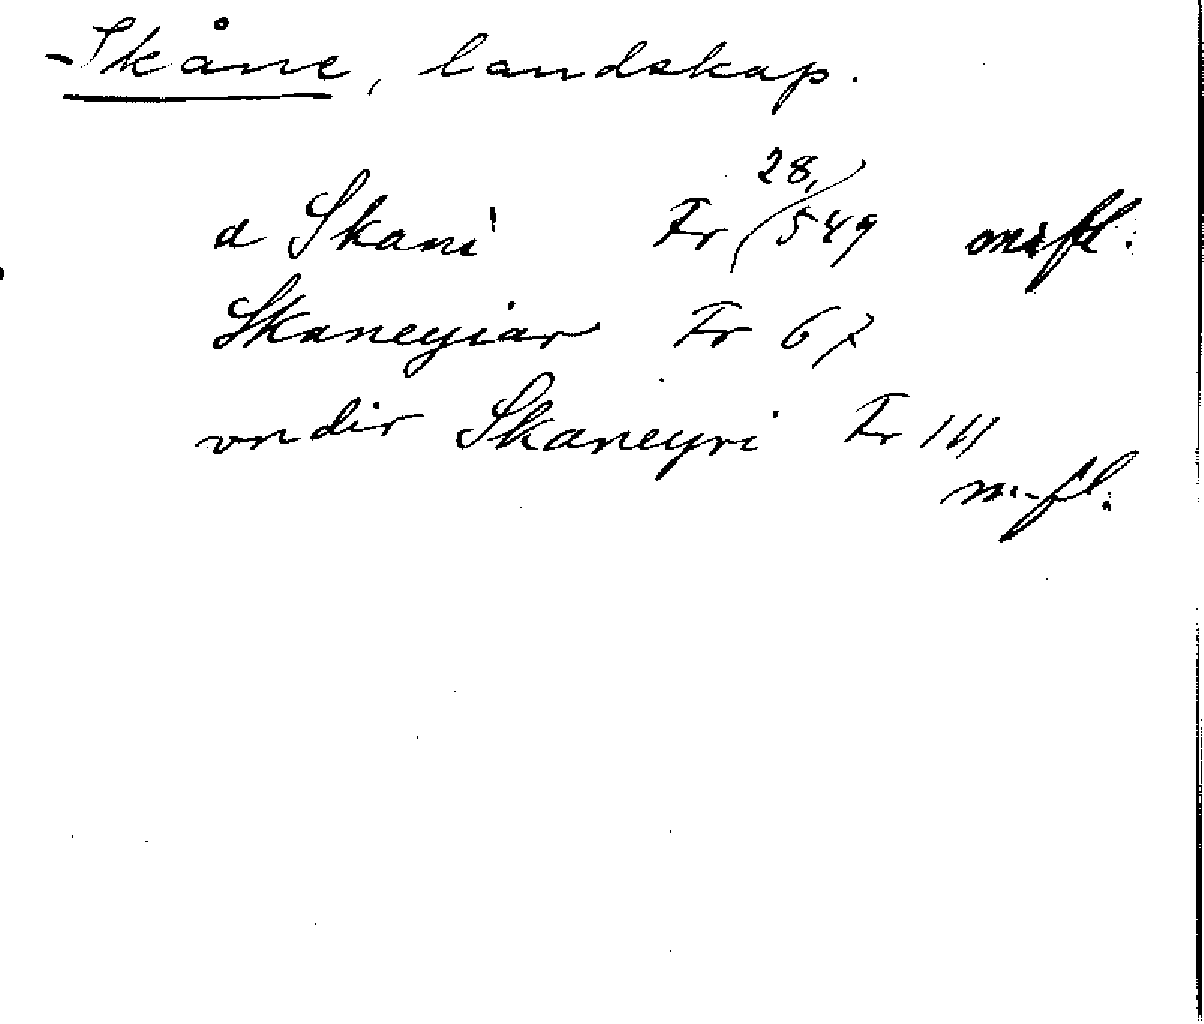 Skåne, landskap.
28,
a Skani Fr 549 m fl.
Skaneyiar Fr 67
vndir Skaneyri Fr 111
m. fl.